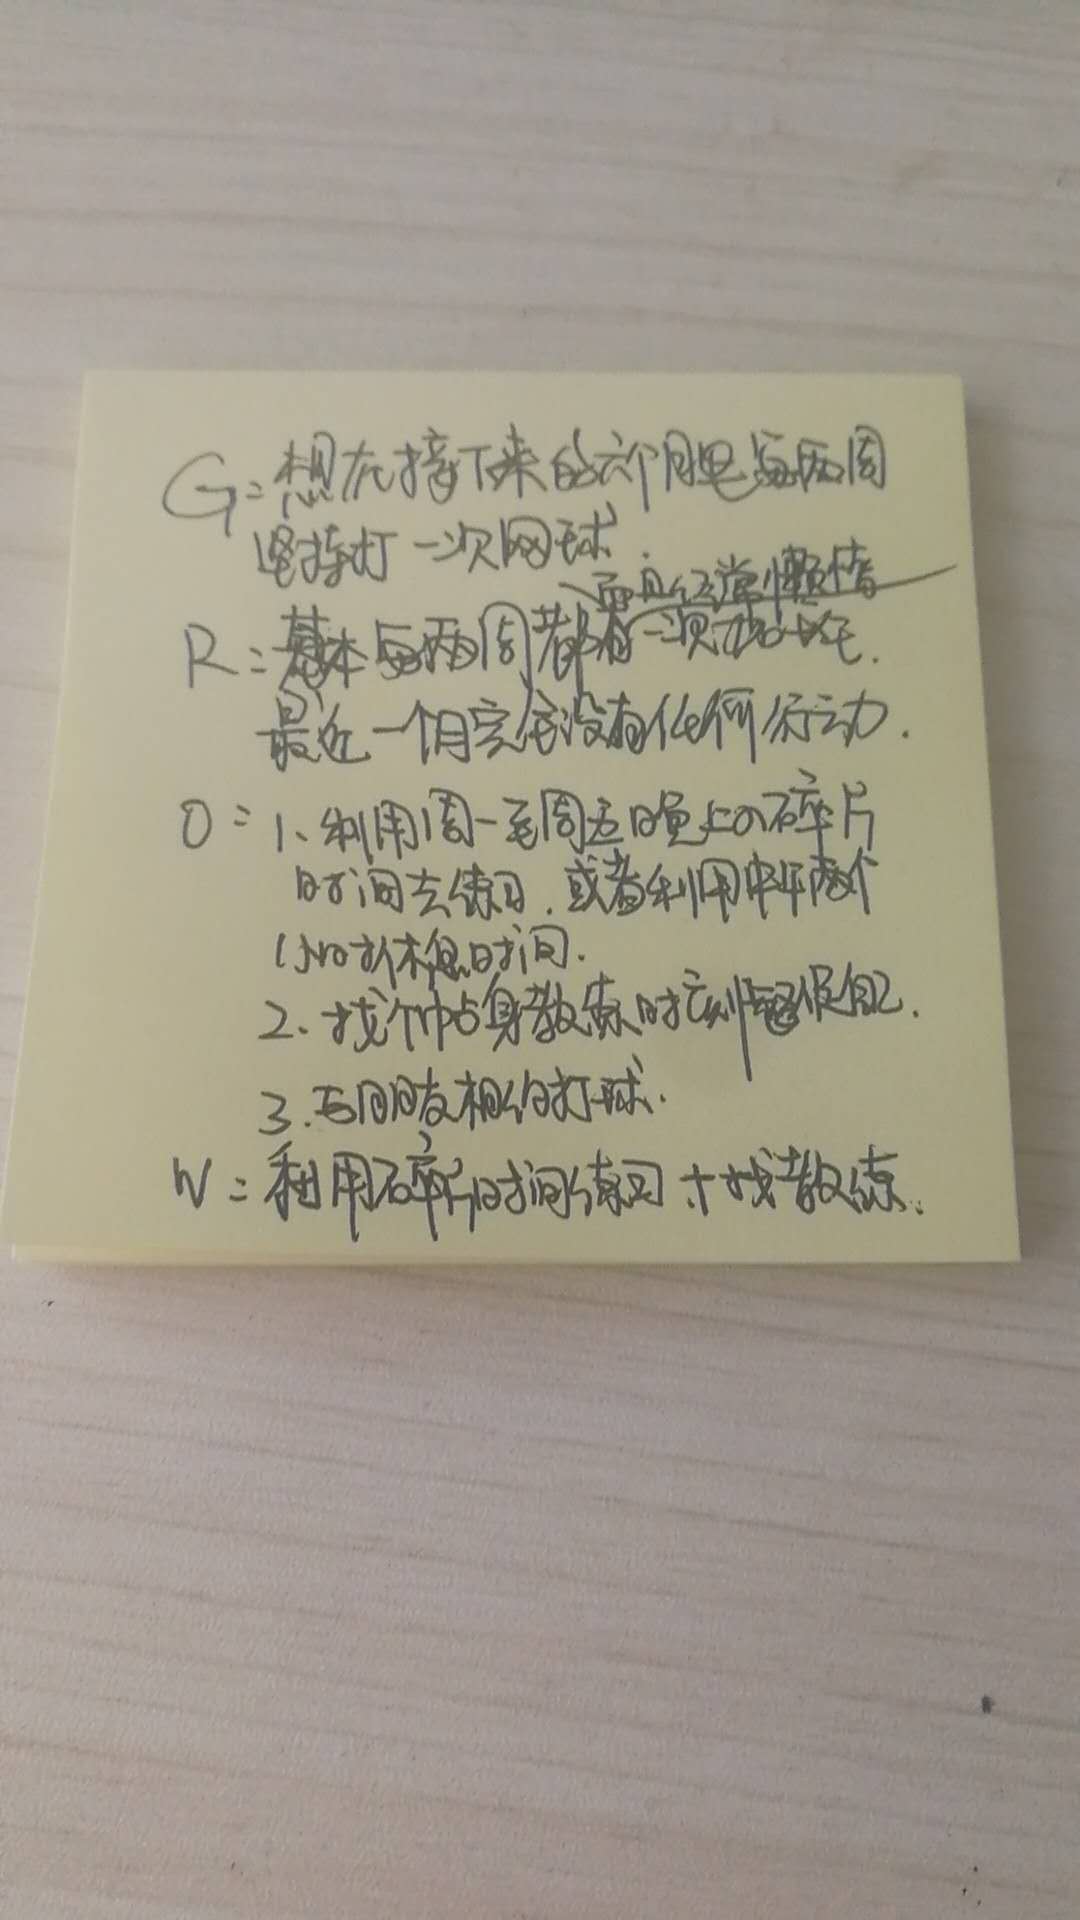 G：想在接下来的六个月里每两周
坚持打一次网球.
而且经常懒惰
R：基本每两周都有一次出差.
最近一个月完全没有任何行动.
O：1、利用周一至周五晚上的碎片
时间去练习.或者利用中午两个
小时休息时间.
2、找个贴身教练时刻提醒.
3.与同朋友相约打球.
W：利用碎片时间练习+找教练.